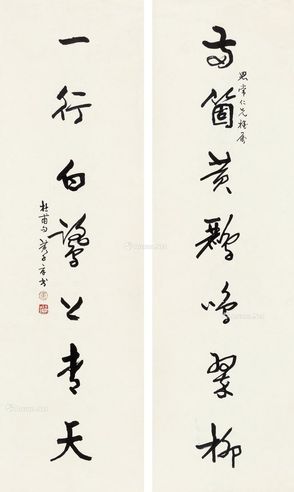 两箇黄鹂鸣翠柳
思常仁兄雅属
一行白鹭上青天
杜甫句 黄子厚书